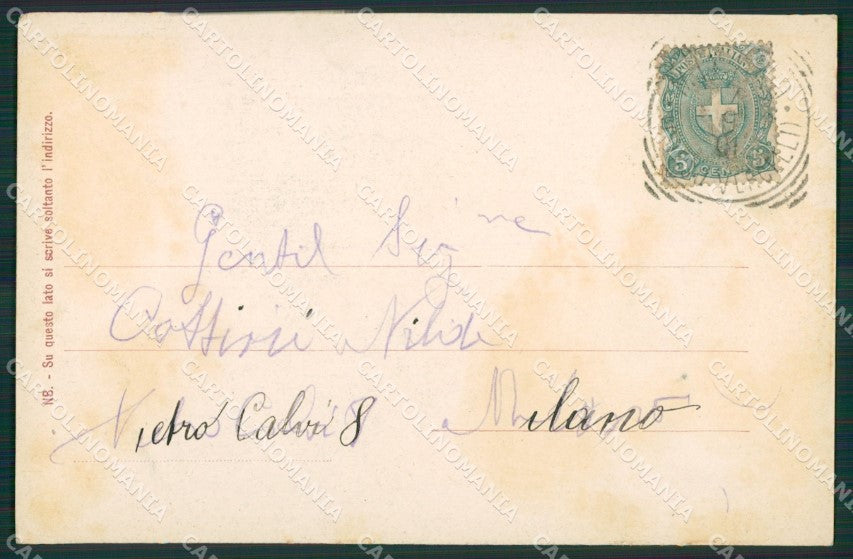 NB. - Su questo lato si scrive soltanto l'indirizzo.
POSTE ITALIANE
5 CENT 5
VERCELLI
Gentil Sig.ne
Nilde
Pietro Calvi 8 Milano
CARTOLINOMANIA